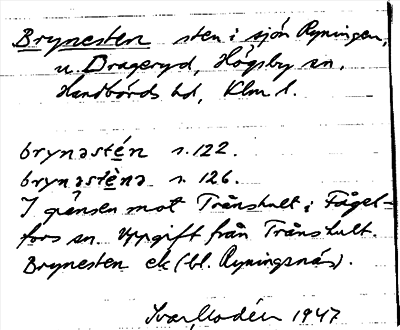 Brynesten sten i sjön Ryningen,
u. Drageryd, Högsby sn,
Handbörds hd, Klm l.
brynəstén s. 122.
brynəstènə s. 126.
I gränsen mot Trånshult i Fågel-
fors sn. Uppgift från Trånshult.
Brynesten ek (bl. Ryningsnäs).
Ivar Modéer 1947